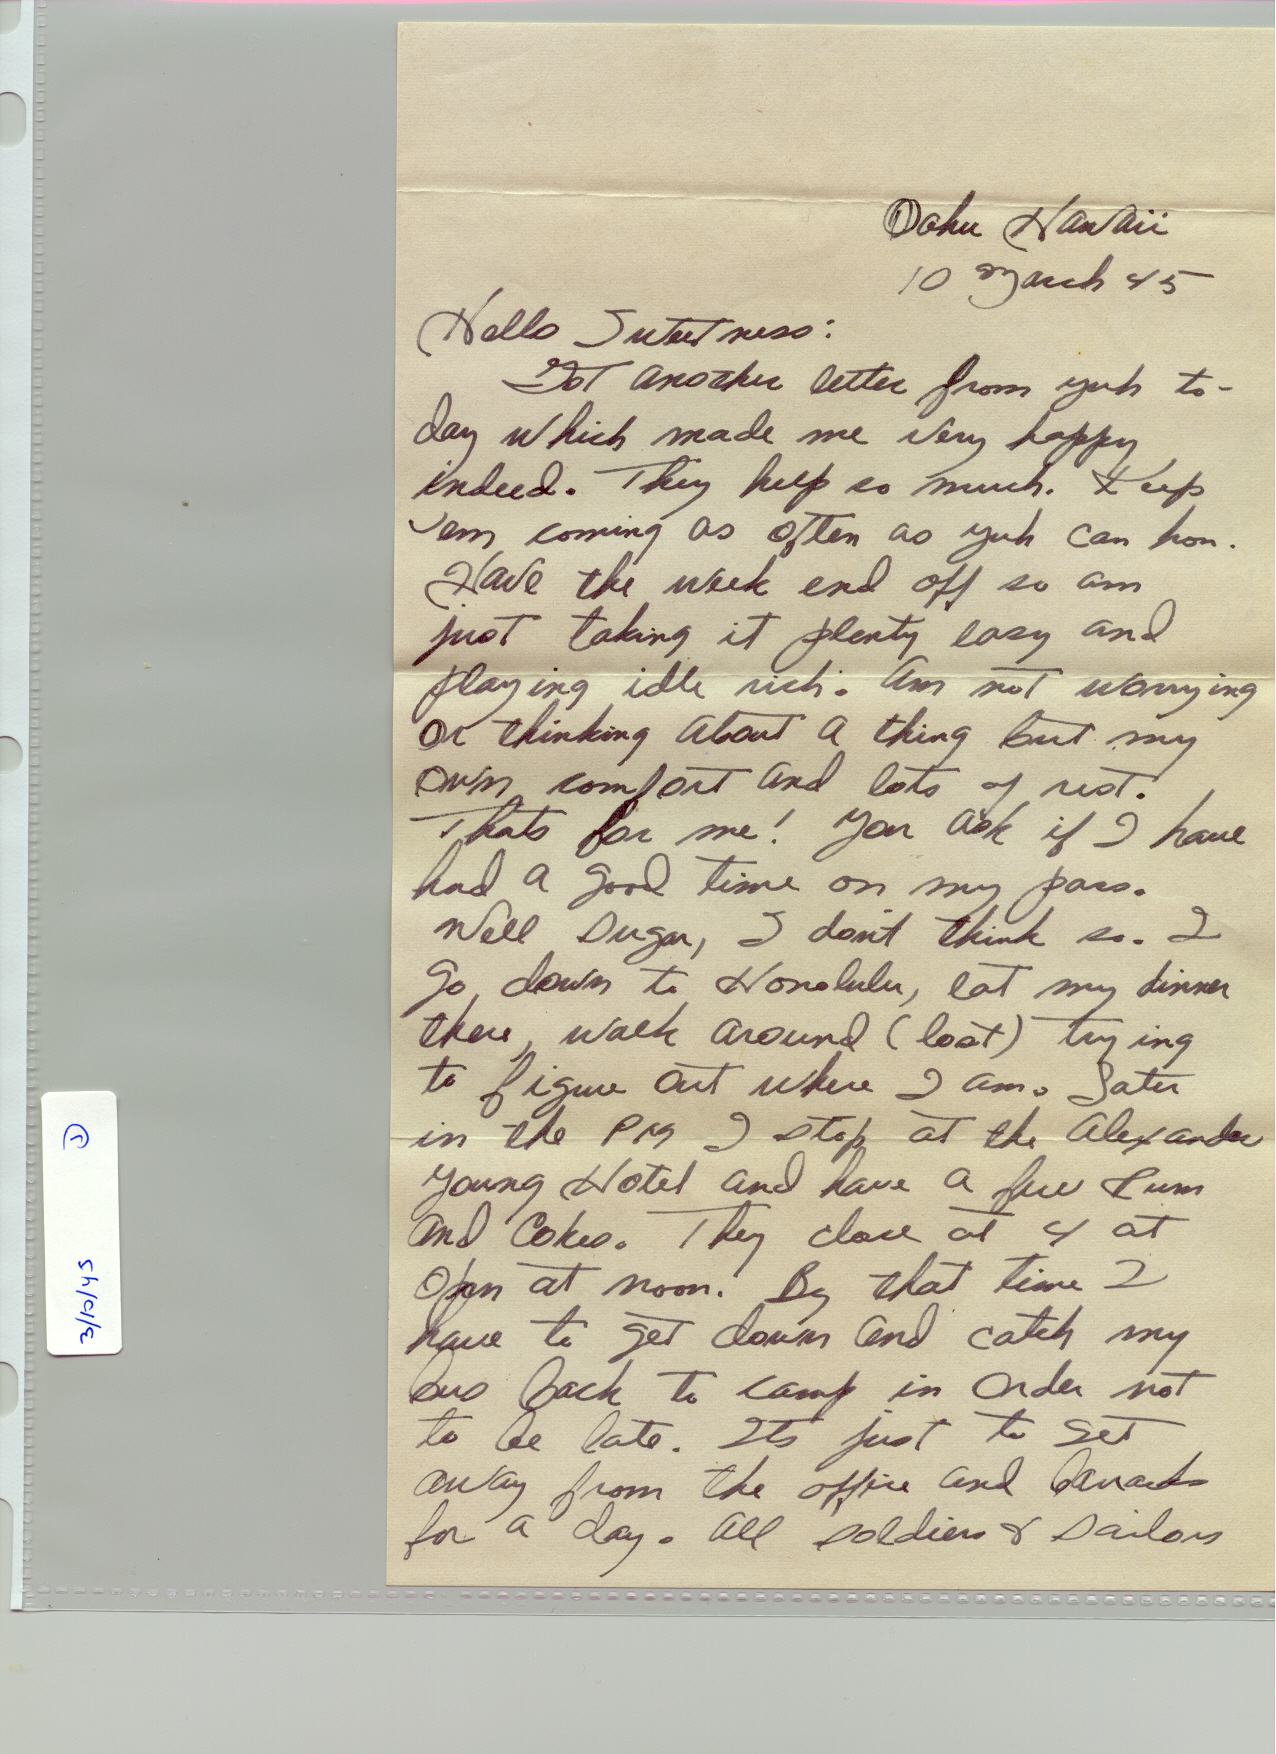 Oahu Hawaii
10 March 45
Hello Sweetness:
Got another letter from yuh to-
day which made me very happy
indeed. They help so much. Keep
'em coming as often as yuh can hon.
Have the week end off so am
just taking it plenty easy and
playing idle rich. Am not worrying
or thinking about a thing but my
own comfort and lots of rest.
Thats for me! You ask if I have
had a good time on my pass.
Well Sugar, I don't think so. I
go down to Honolulu, eat my dinner
there, walk around (lost) trying
to figure out where I am. Later
in the PM I stop at the Alexander
Young Hotel and have a few Rum
and Cokes. They close at 4 at
open at noon. By that time I
have to get down and catch my
bus back to camp in order not
to be late. Its just to get
away from the office and barracks
for a day. All soldiers & sailors
① 3/10/45